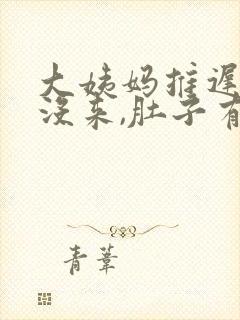 大姨妈推迟
没来,肚子有
青苇